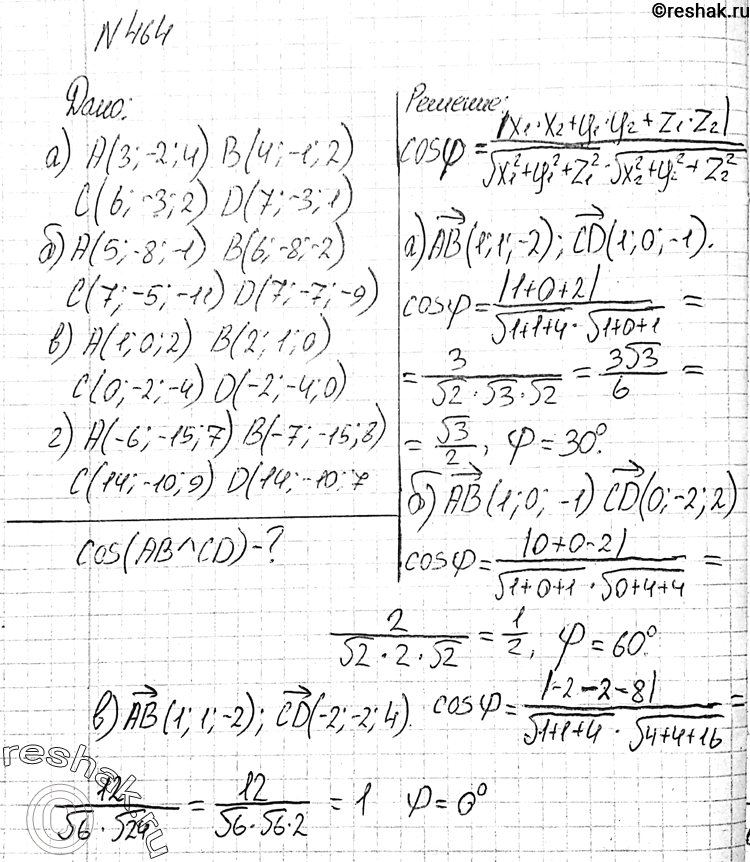 ©reshak.ru
N 464
Дано:
а) A(3;-2;4) B(4;-1;2)
C(6;-3;2) D(7;-3;1)
б) A(5;-8;-1) B(6;-8;-2)
C(7;-5;-11) D(7;-7;-9)
в) A(1;0;2) B(2;1;0)
C(0;-2;-4) D(-2;-4;0)
г) A(-6;-15;7) B(-7;-15;8)
C(14;-10;9) D(14;-10;7
cos(AB^CD)-?
Решение:
cosφ = |x₁·x₂+y₁·y₂+z₁·z₂| / √x₁²+y₁²+z₁² · √x₂²+y₂²+z₂²
а) AB(1;1;-2); CD(1;0;-1).
cosφ = |1+0+2| / √1+1+4 · √1+0+1 =
= 3 / √2·√3·√2 = 3√3 / 6 =
= √3 / 2, φ=30°.
б) AB(1;0;-1) CD(0;-2;2)
cosφ = |0+0-2| / √1+0+1 · √0+4+4 =
2 / √2·2·√2 = 1/2, φ=60°.
в) AB(1;1;-2); CD(-2;-2;4). cosφ = |-2-2-8| / √1+1+4 · √4+4+16 =
12 / √6·√24 = 12 / √6·√6·2 = 1 φ=0°
reshak.ru